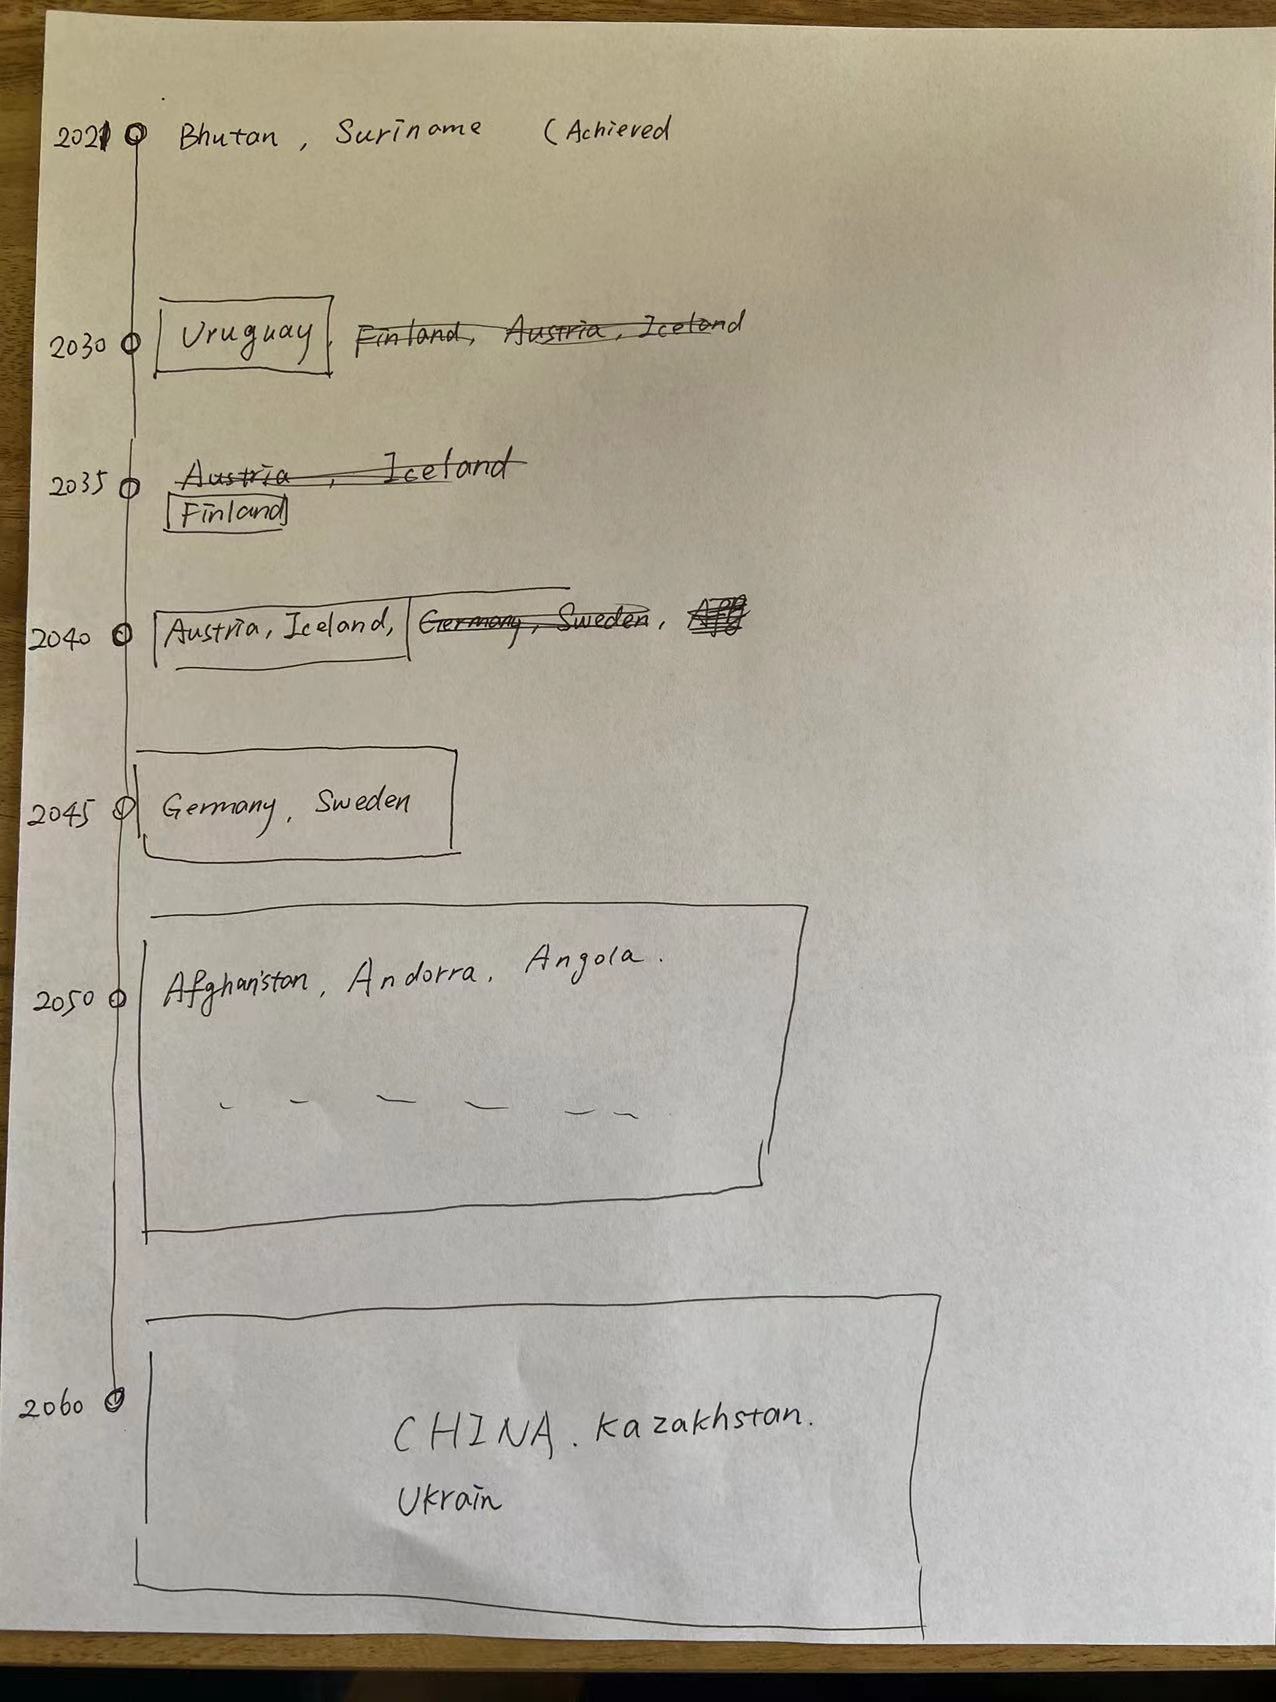 2021 Bhutan, Suriname (Achieved
2030 Uruguay, Finland, Austria, Iceland
2035 Austria, Iceland
Finland
2040 Austria, Iceland, Germany, Sweden, Afg
2045 Germany, Sweden
2050 Afghanistan, Andorra, Angola.
2060 CHINA. Kazakhstan.
Ukrain